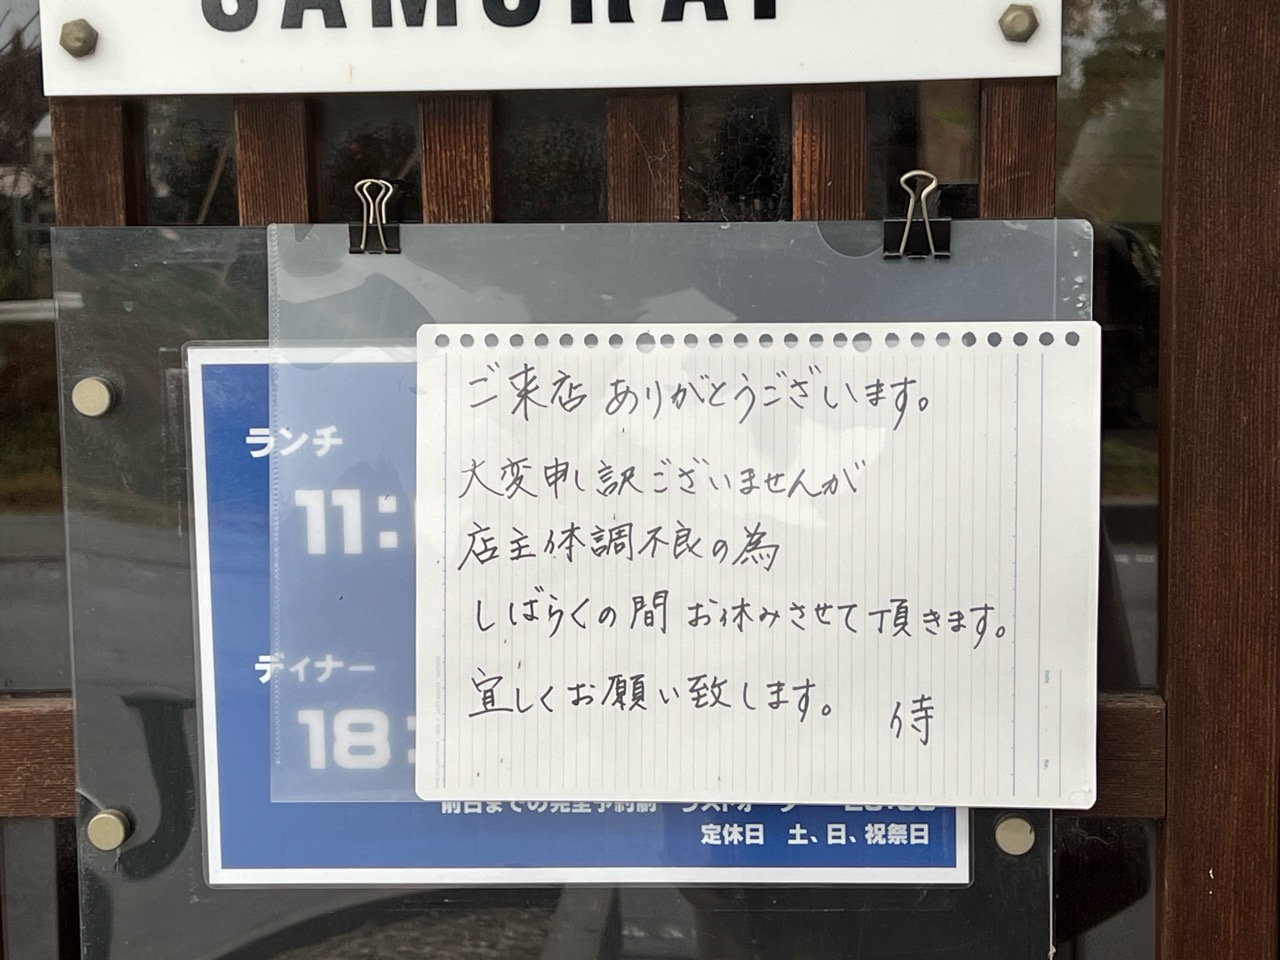 SAMURAI
ご来店 ありがとうございます。
大変申し訳ございませんが
店主体調不良の為
しばらくの間 お休みさせて頂きます。
宜しくお願い致します。 侍
ランチ
11:
ディナー
18:
前日までの完全予約制 ラストオーダー
定休日 土、日、祝祭日